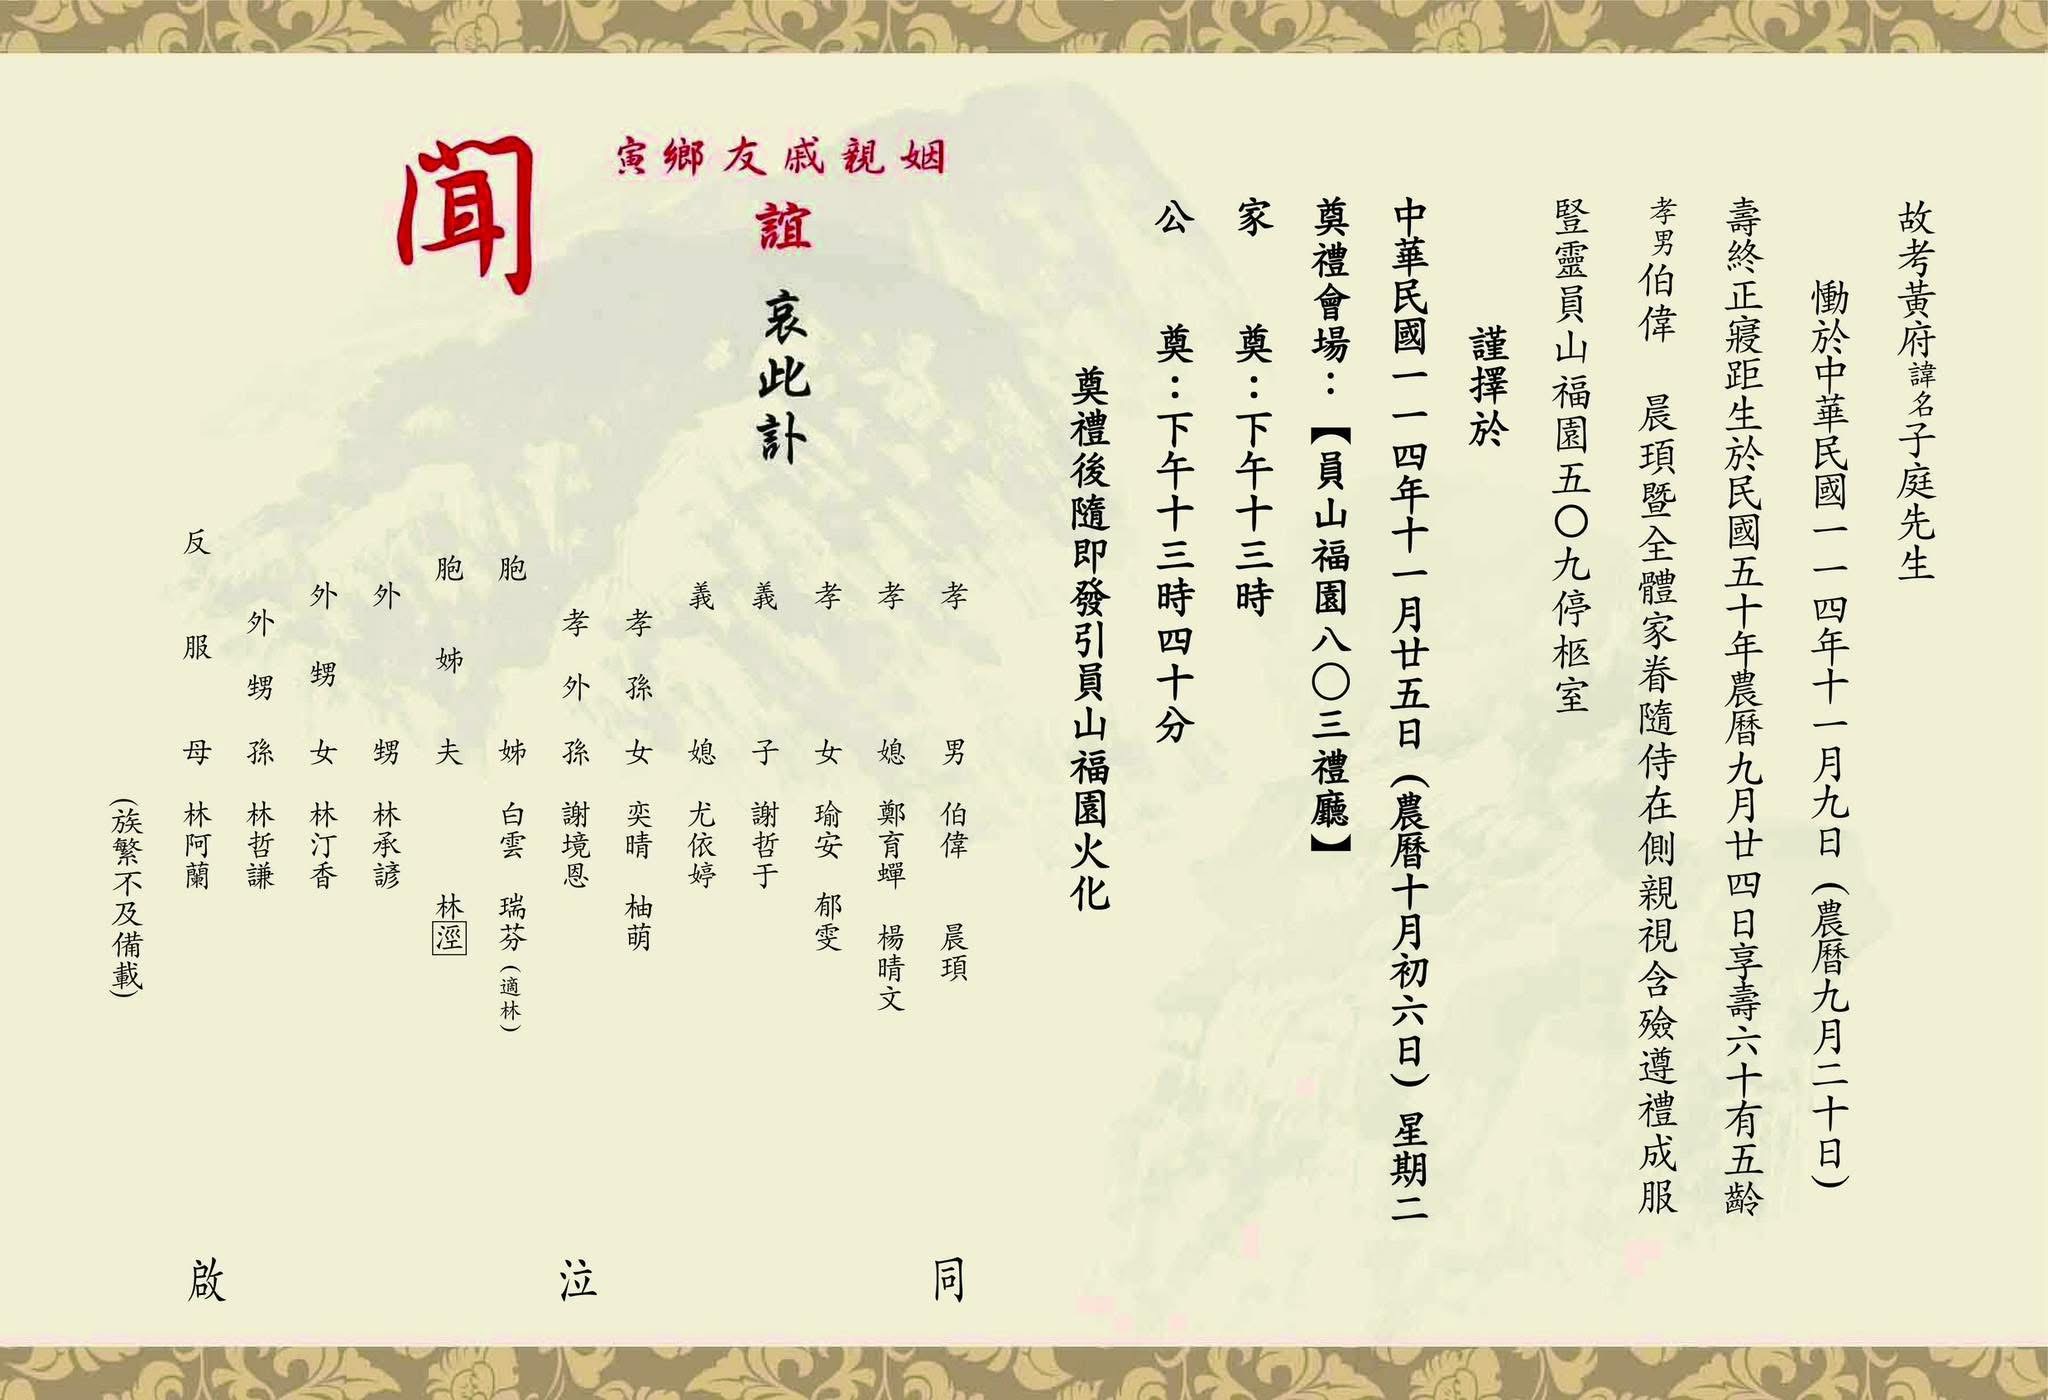 故考黃府諱名子庭先生
慟於中華民國一一四年十一月九日(農曆九月二十日)
壽終正寢距生於民國五十年農曆九月廿四日享壽六十有五齡
孝男伯偉 晨頊暨全體家眷隨侍在側親視含殮遵禮成服
豎靈員山福園五〇九停柩室
謹擇於
中華民國一一四年十一月廿五日(農曆十月初六日)星期二
奠禮會場:【員山福園八〇三禮廳】
家 奠:下午十三時
公 奠:下午十三時四十分
奠禮後隨即發引員山福園火化
姻親戚友鄉寅
誼 哀此訃
聞
孝男 伯偉 晨頊
孝媳 鄭育蟬 楊晴文
孝女 瑜安 郁雯
義子 謝哲于
義媳 尤依婷
孝孫女 奕晴 柚萌
孝外孫 謝境恩
胞姊 白雲 瑞芬(適林)
胞姊夫 林涇
外甥 林承諺
外甥女 林汀香
外甥孫 林哲謙
反服母 林阿蘭
(族繁不及備載)
同泣啟